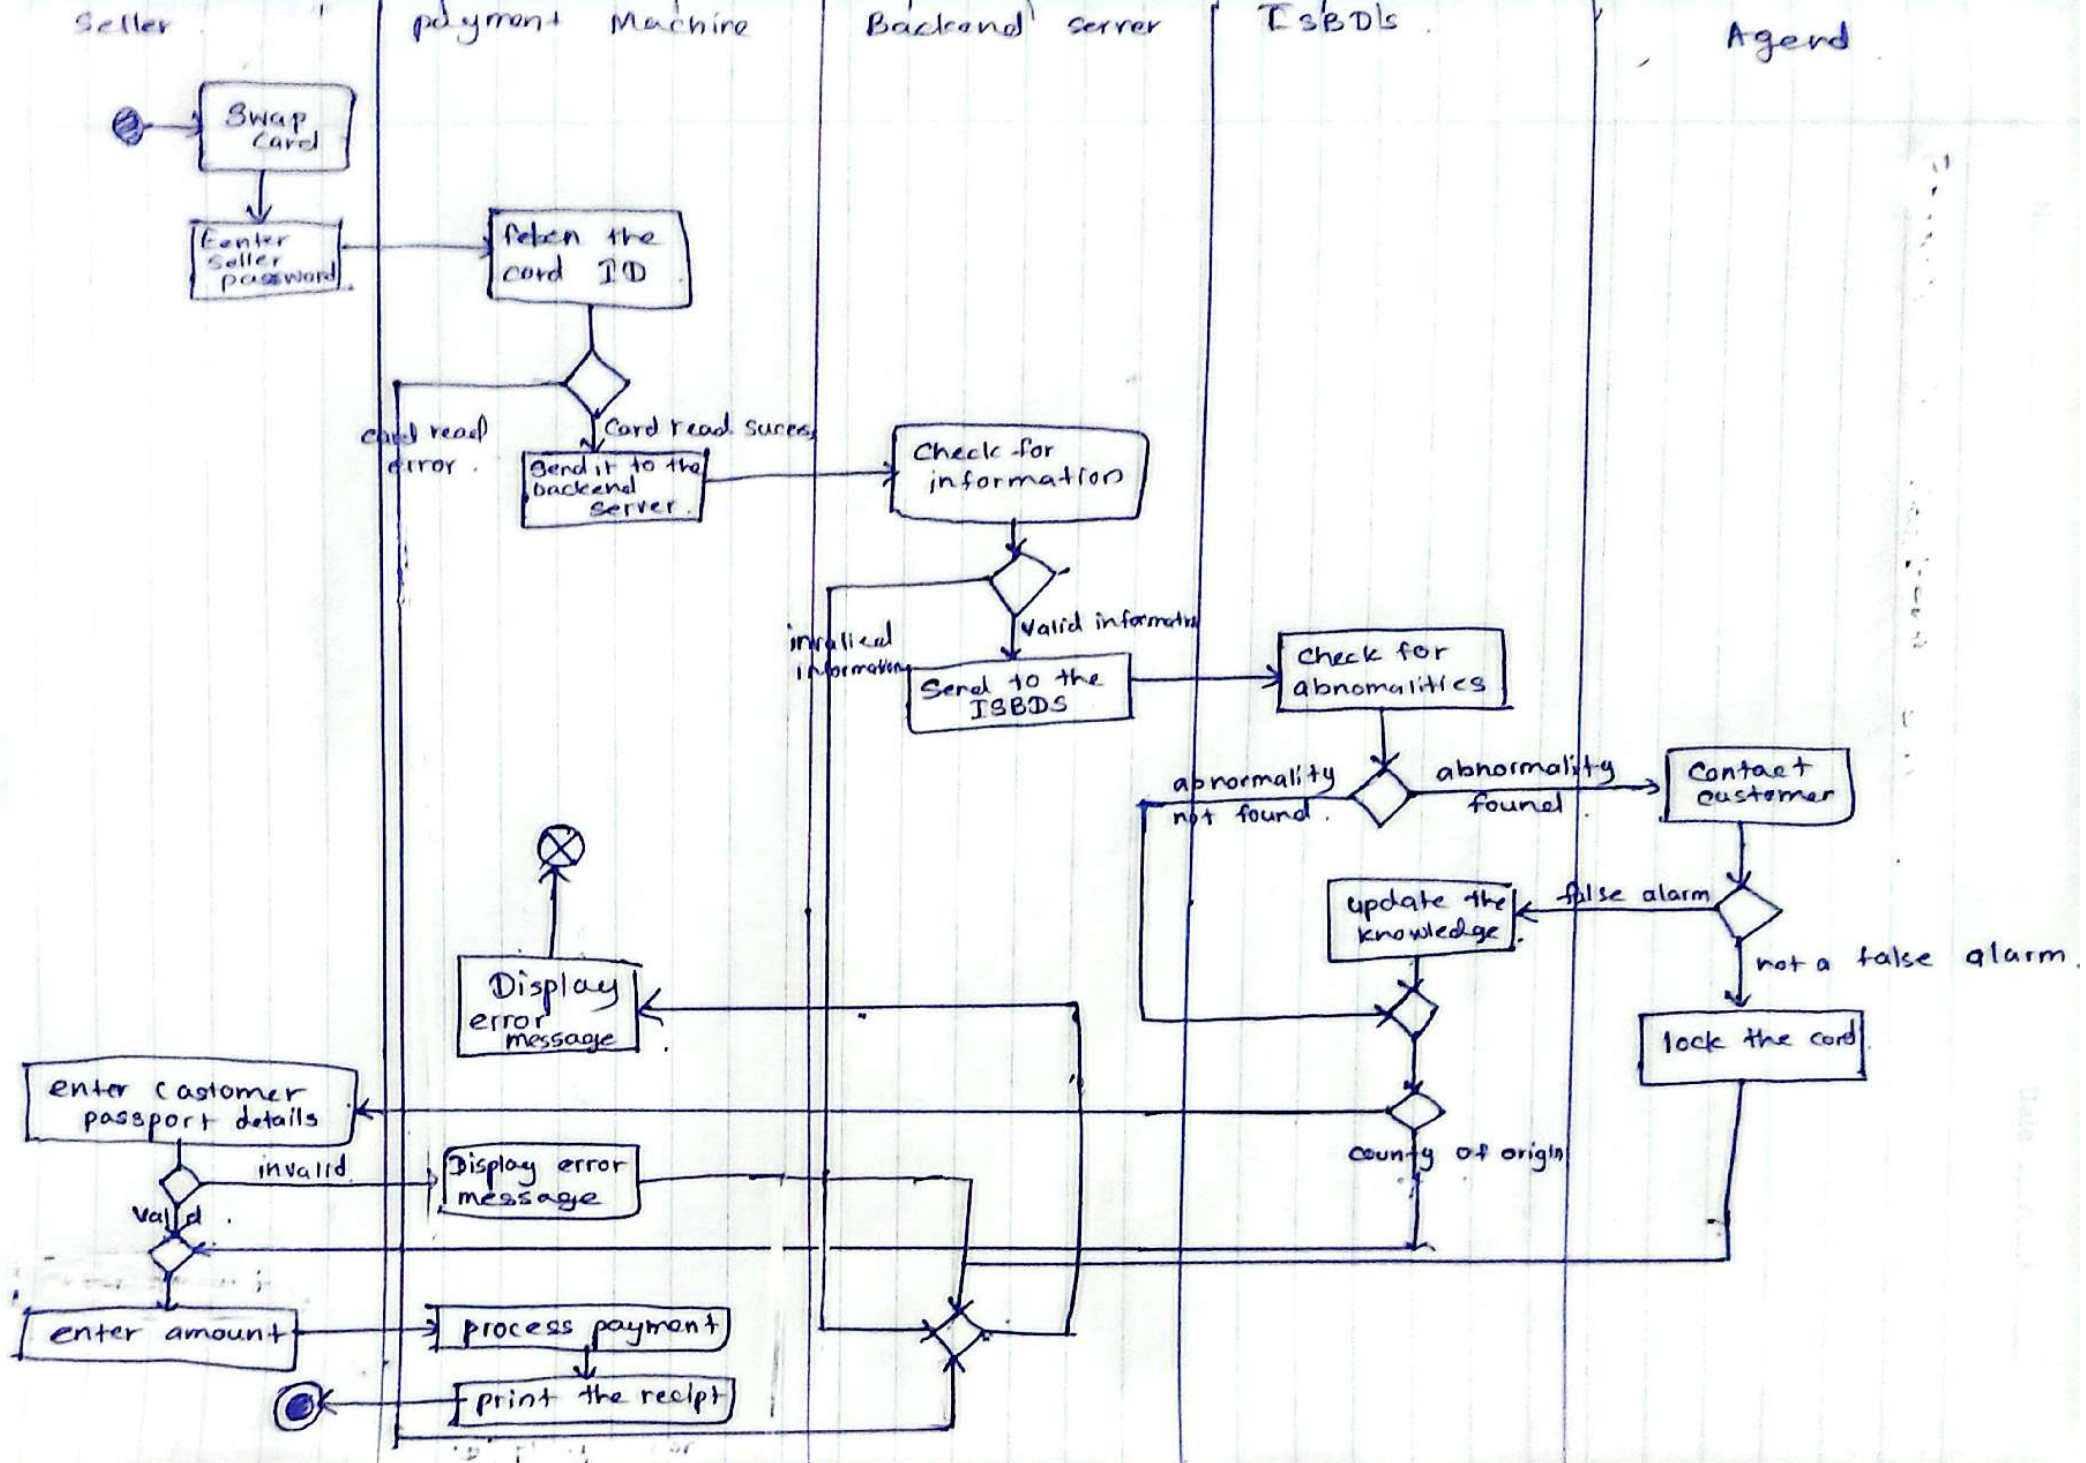 Seller
payment Machine
Backend server
ISBDs
Agend
Swap
Card
Eenter
seller
password
fetch the
card ID
card read
error.
Card read sucess
Send it to the
backend
server.
Check for
information
invalied
information
Valid information
Send to the
ISBDS
Check for
abnomalities
abnormality
not found.
abnormality
found.
Contact
customer
update the
knowledge.
false alarm
not a false alarm.
lock the card
Display
error
message
enter Castomer
passport details
county of origin
invalid
Display error
message
valid.
enter amount
process payment
print the recipt